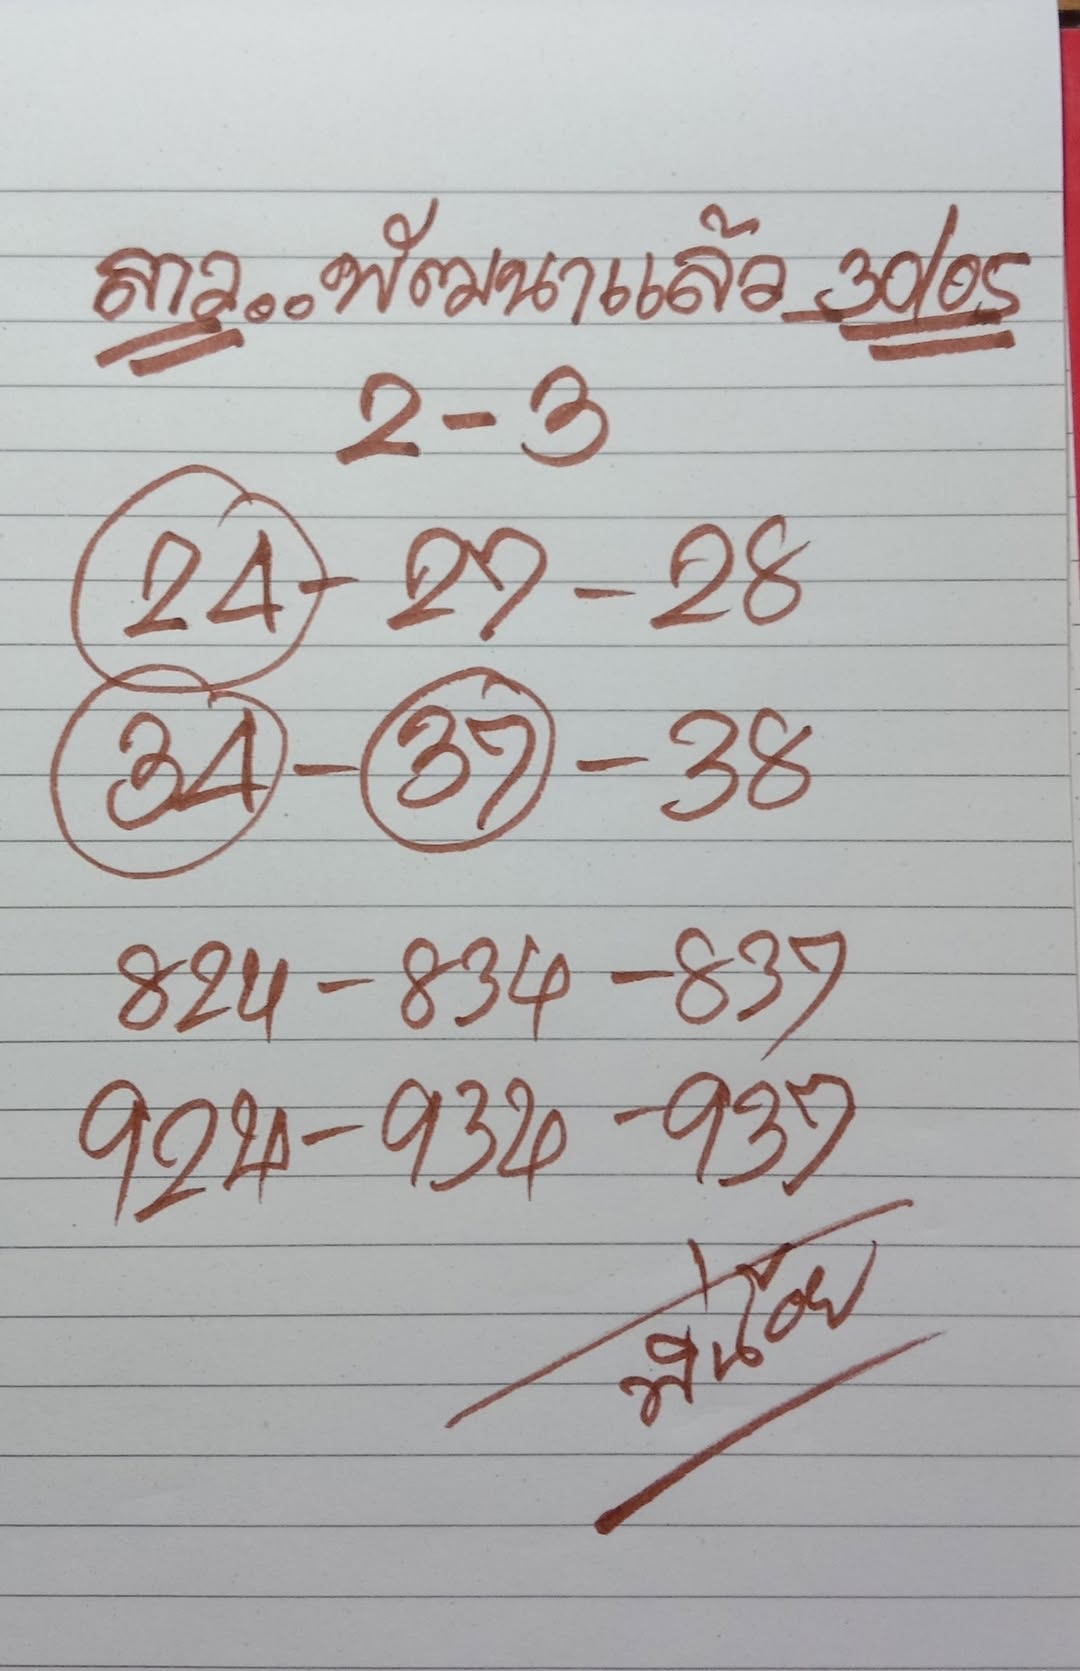 ลาว..พัฒนาแล้ว 30/05
2-3
24-27-28
34-37-38
824-834-837
924-934-937
พี่น้อย